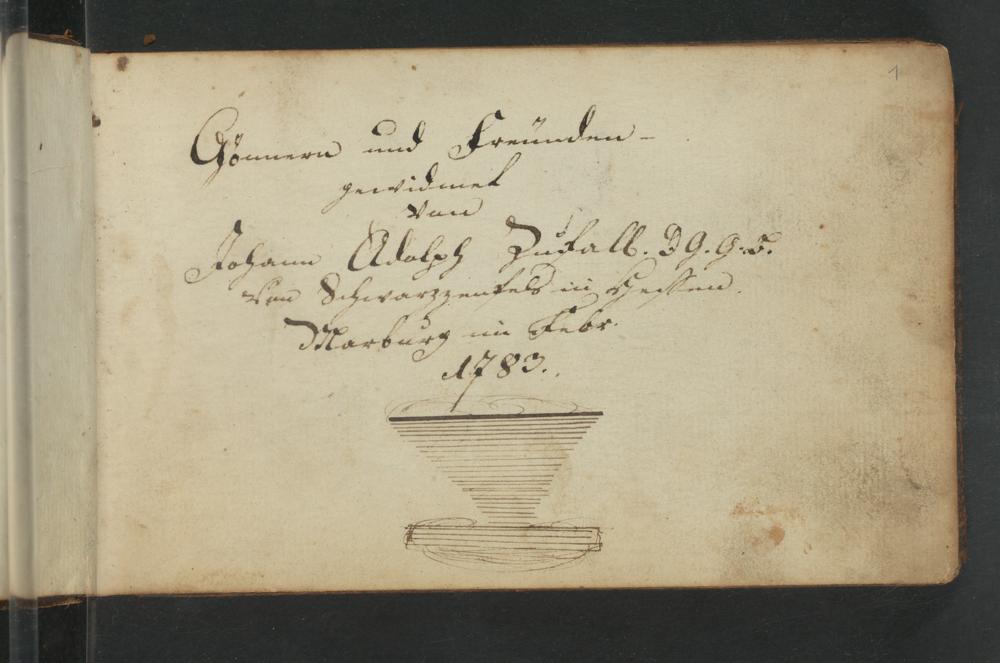 1
Gönnern und Freünden-
gewidmet
von
Johann Adolph Zufall. D G. G. B.
von Schwarzzenfels in Hessen.
Marburg im Febr.
1783.